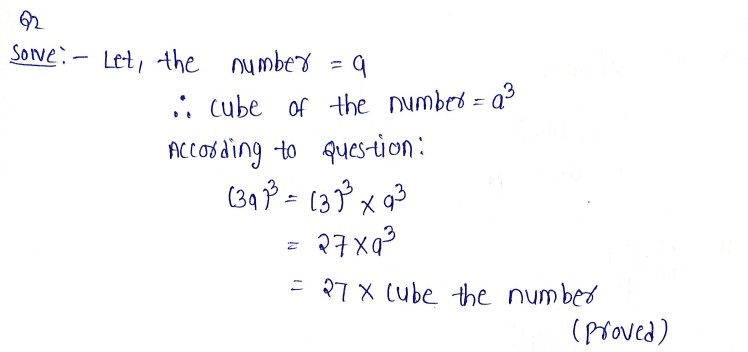 Q2
Solve:- Let, the number = a
∴ cube of the number = a³
According to question:
(3a)³ = (3)³ × a³
= 27 × a³
= 27 × cube the number
(Proved)